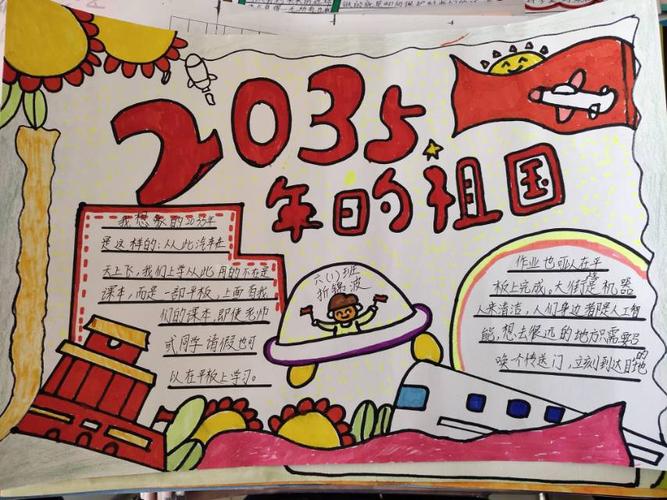 2035
年的祖国
我想象的2035年
是这样的:从此汽车在
天上飞,我们上学从此用的不在是
课本,而是一部平板,上面有我
们的课本,即使老师
或同学请假也可
以在平板上学习。
六(1)班
折锦波
作业也可以在平
板上完成,大街是机器
人来清洁,人们身边都是人工智
能,想去很远的地方只需要
唤个传送门,立刻到达目的地